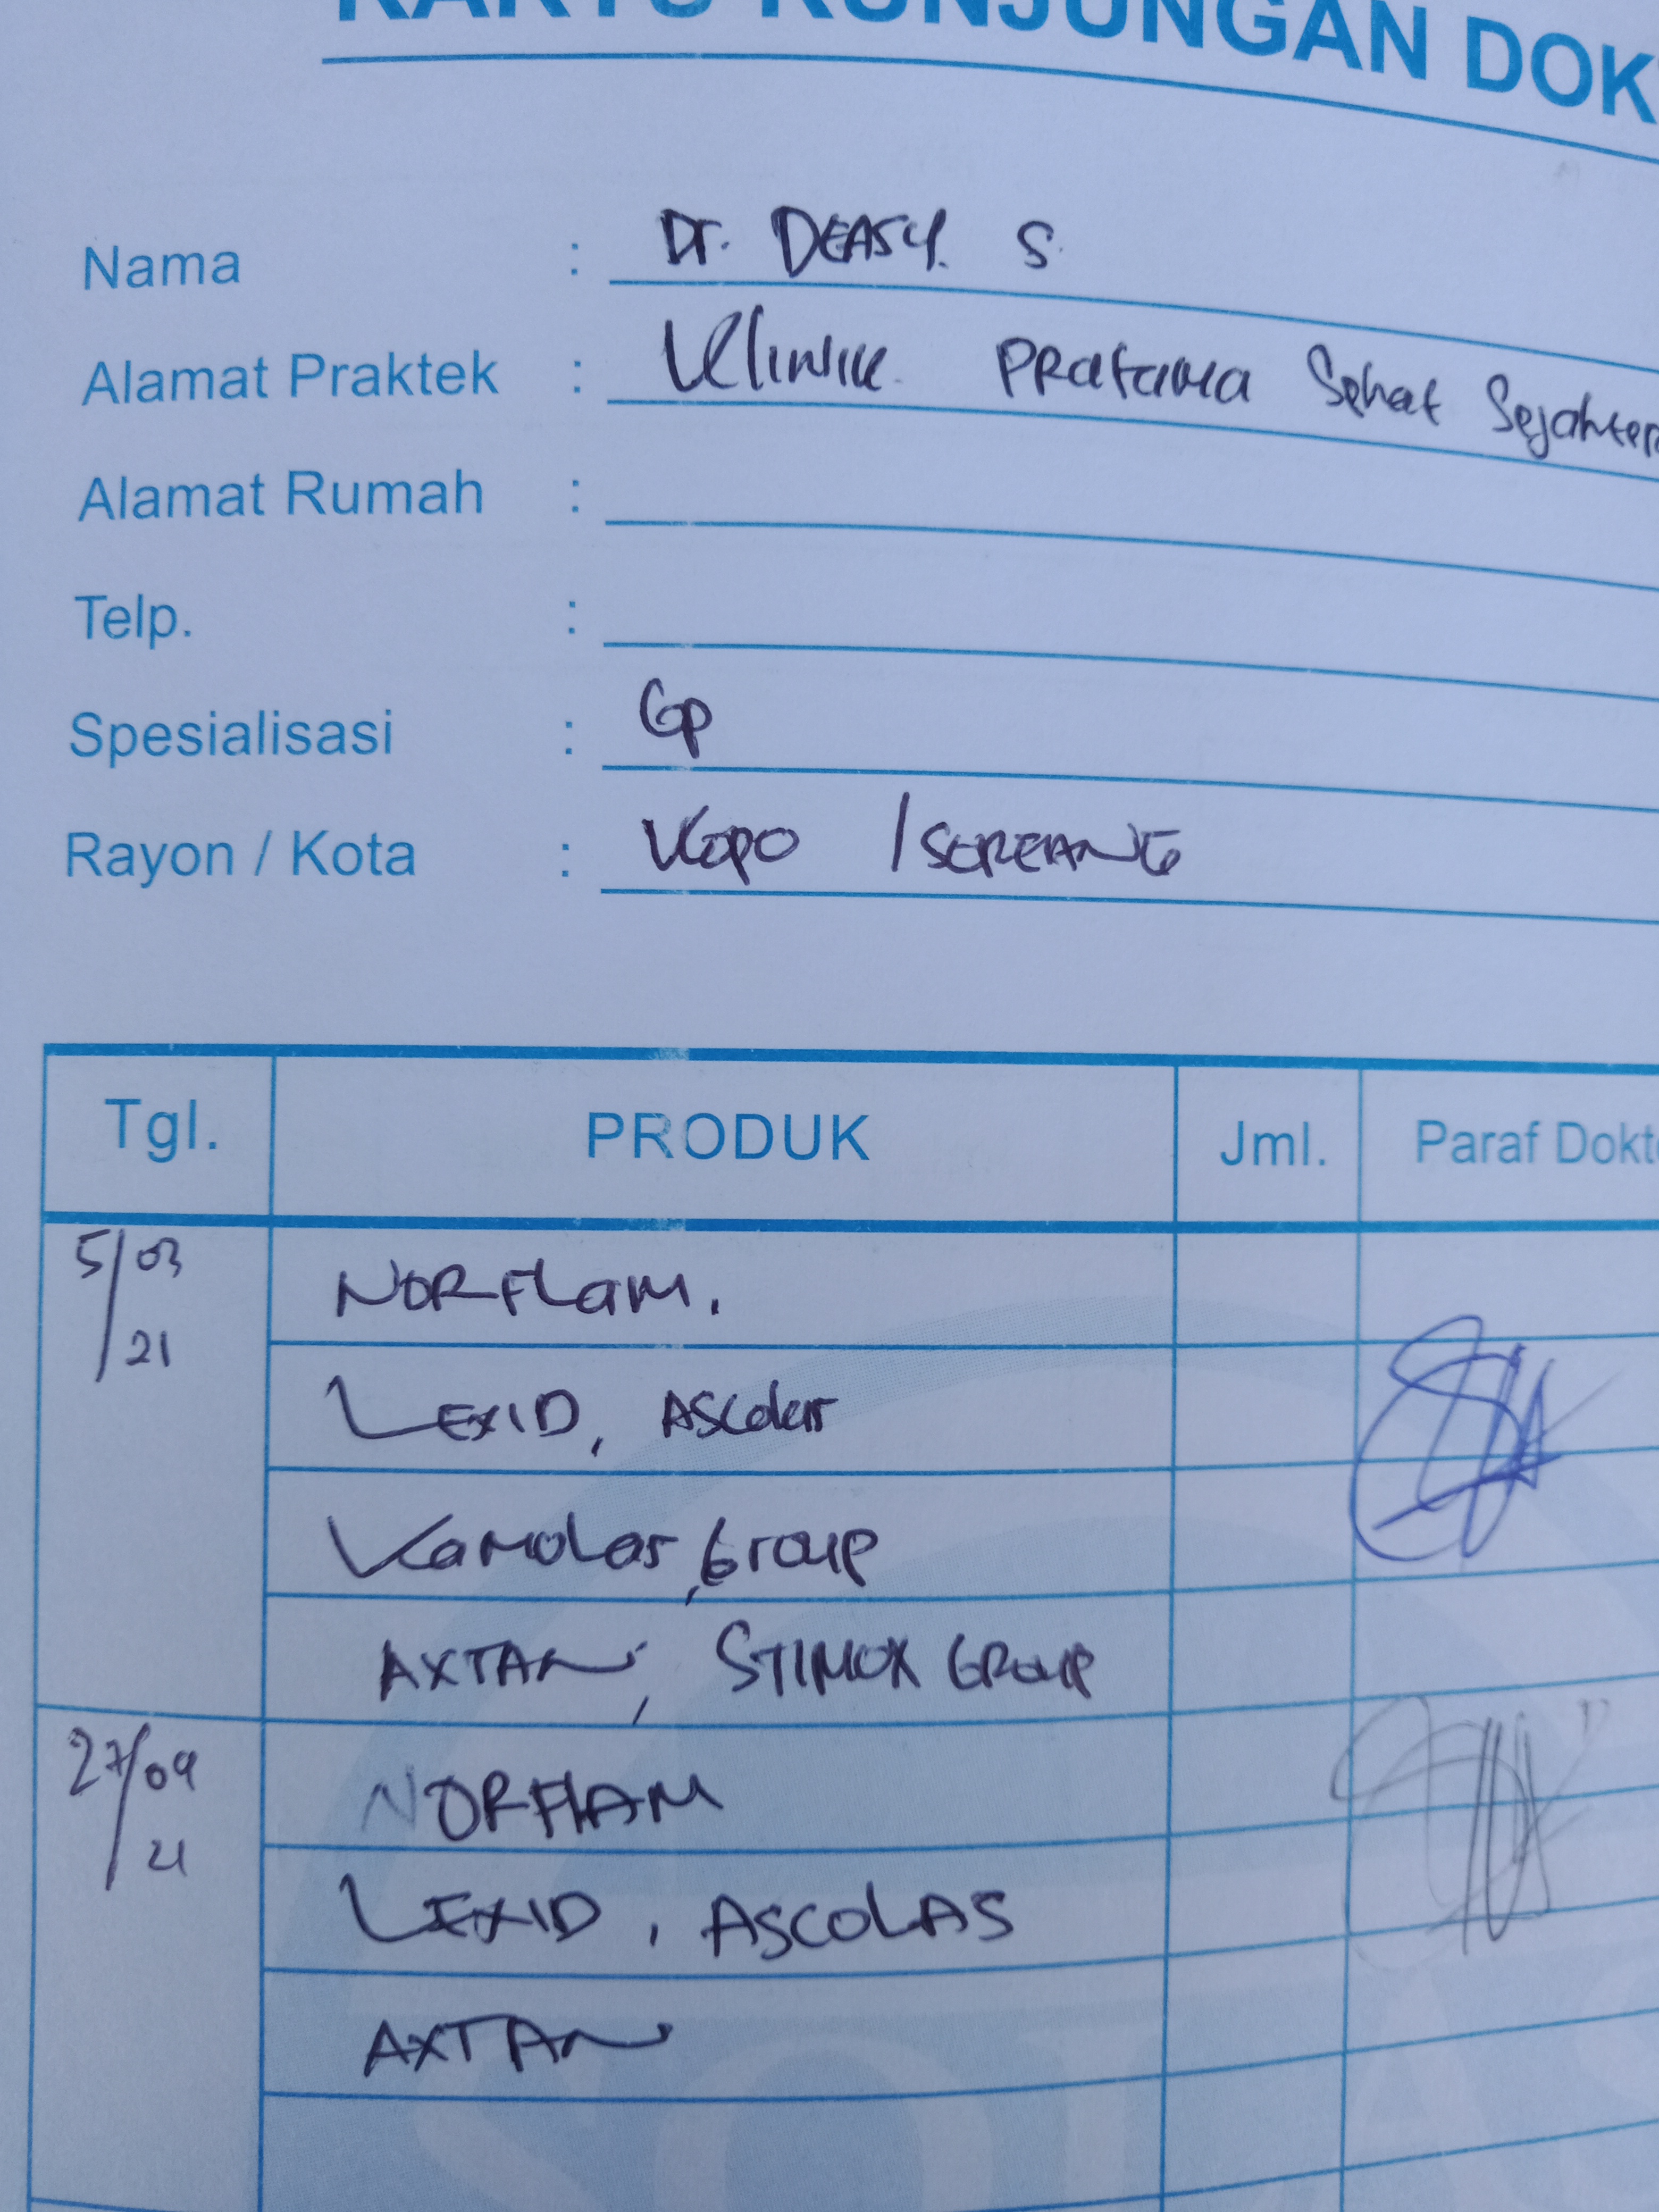 KARTU KUNJUNGAN DOK
Nama : Dr. DEASY. S.
Alamat Praktek : Klinik Pratama Sehat Sejahter
Alamat Rumah :
Telp. :
Spesialisasi : Gp
Rayon / Kota : Kopo / SOREANG
Tgl. PRODUK Jml. Paraf Dokte
5/03/21 NORFLAM.
LEXID, Ascolas
Kamolas, Group
AXTAN, STIMOX GROUP
27/09/21 NORFLAM
LEXID, ASCOLAS
AXTAN
SOLAS